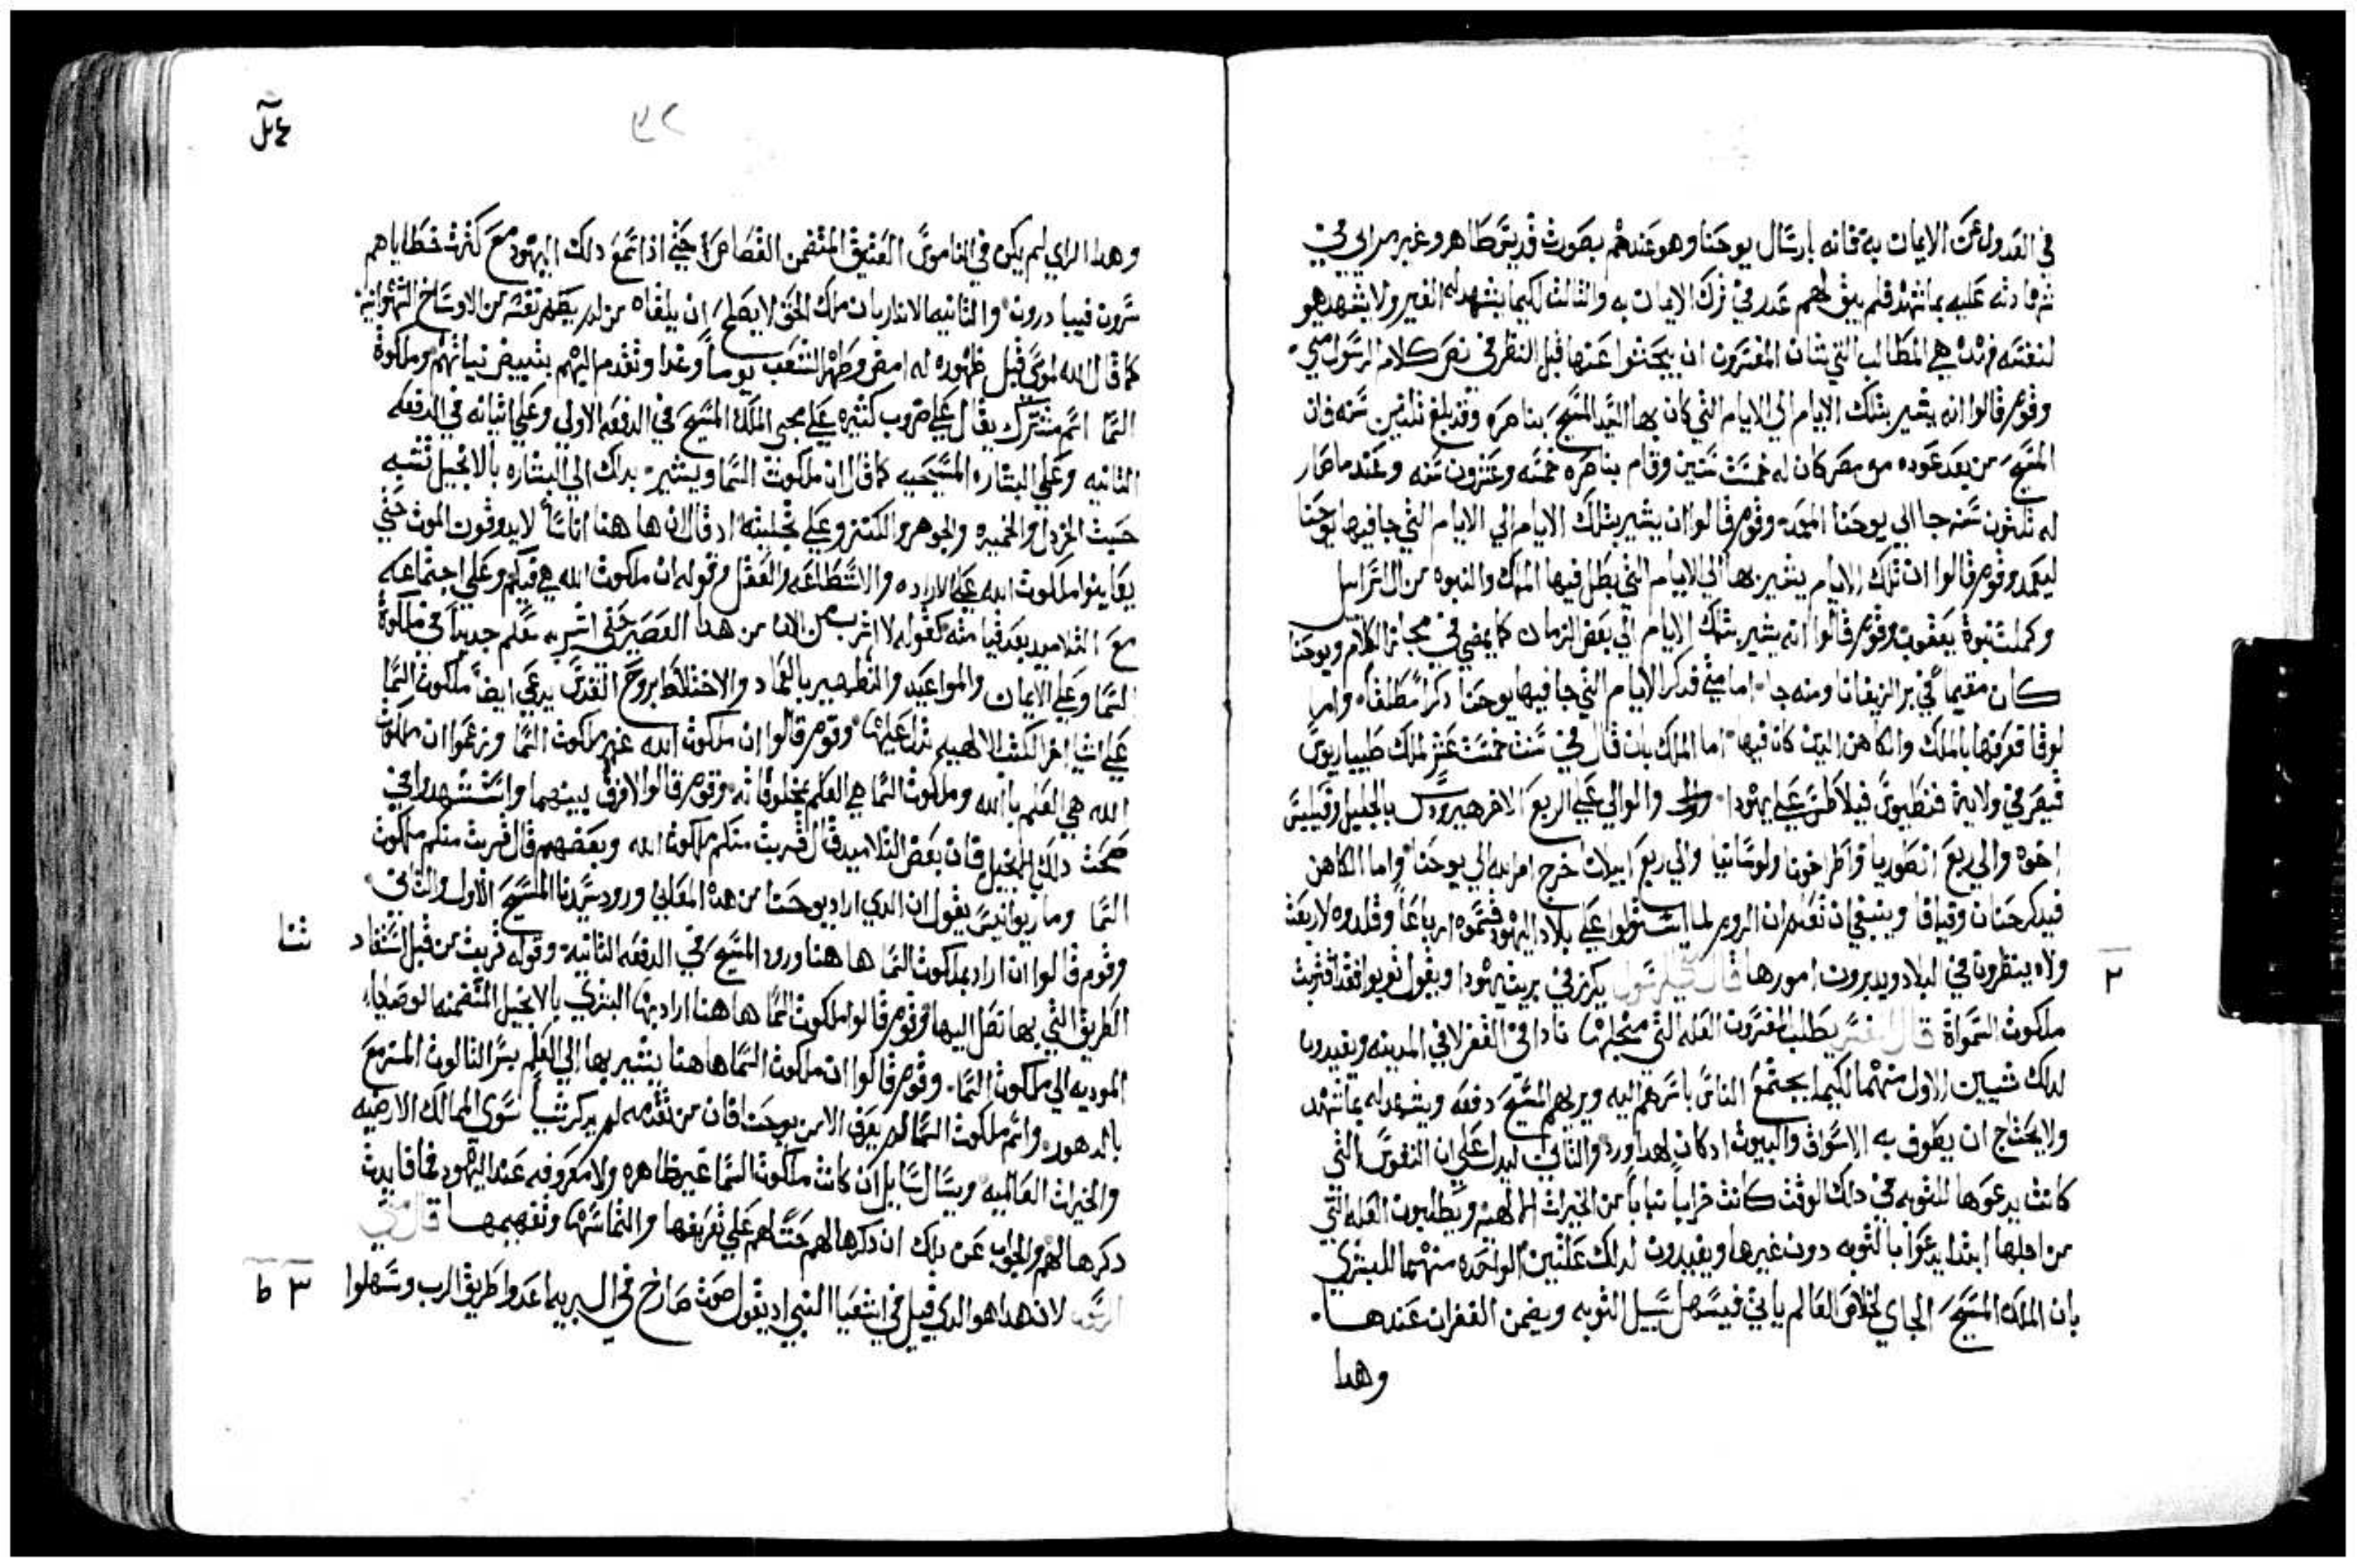 في العدول عن الايمان به فانه بارسال يوحنا وهو عندهم بصورت قديس طاهر وغير مراي في
شهادته عليه بما شهد فلم يبق لهم عدر في ترك الايمان به والثالث لكيما يشهد له الغير ولا يشهد هو
لنفسه فهده هي المطالب التي شان المفسرون ان يبحثوا عنها قبل النظر في نص كلام الرسول متي
وقوم قالوا انه يشير بتلك الايام الي الايام التي كان بها السيد المسيح بناصره وقد بلغ تلثين سنه فان
المسيح من بعد عوده من مصر كان له خمست سنين وقام بناصره خمسه وعشرون سنه وعند ما صار
له تلثون سنه جا الي يوحنا المعمد وقوم قالوا ان يشير بتلك الايام الي الايام التي جا فيها يوحنا
ليعمد وقوم قالوا ان تلك الايام يشير بها الي الايام التي بطل فيها الملك والنبوه من ال اسرايل
وكملت نبوة يعقوب وقوم قالوا انه يشير بتلك الايام الي بعض الزمان كما يمضي في مجاز الكلام ويوحنا
كان مقيماً في بر الزيفانا ومنه جا اما متي فدكر الايام التي جا فيها يوحنا دكراً مطلقاً واما
لوقا فعرفها بالملك والكاهن الدين كانا فيها اما الملك بان قال في سنت خمست عشر لملك طيباريوس
قيصر في ولاية فنطيوس فيلاطس علي يهودا والوالي علي الربع الاخر هيرودس بالجليل وفيلبس
اخوه والي ربع انطوريا واطراخونا ولوسانيا والي ربع ابيلات خرج امر الله الي يوحنا واما الكاهن
فيدكر حنان وقيافا وينبغي ان تعلم ان الروم لما استولوا علي بلاد اليهود قسموه ارباعاً وقلدوه لاربعت
ولاه ينظرون في البلاد ويدبرون امورها قال متي الرسول يكرز في بريت يهودا ويقول توبوا فقد اقتربت
٢
ملكوت السمواة قال المفسر يطلب المفسرون العله التي من اجلها نادا في القفر لا في المدينه ويفيدون
لدلك شيين الاول منهما لكيما يجتمع الناس باسرهم اليه ويريهم المسيح دفعه ويشهد له بما شهد
ولا يحتاج ان يطوف به الاسواق والبيوت اد كان لهدا ورد والثاني ليدل علي ان النفوس التي
كانت يدعوها للتوبه في دلك الوقت كانت خراباً يباباً من الخيرات الالهيه ويطلبون العله التي
من اجلها ابتدا يدعوا بالتوبه دون غيرها ويفيدون لدلك علتين الواحده منهما للبشري
بان الملك المسيح الجاي لخلاص العالم ياتي فيسهل سبيل التوبه ويضمن الغفران عندها
وهدا
وهدا الراي لم يكن في الناموس العتيق المتضمن القصاص حتي ادا سمع دلك اليهود مع كثرت خطاياهم
يسرون فيبادرون والثانيه الاندار بان ملك الحق لا يصلح ان يلقاه من لم يطهر نفسه من الاوساخ الشهوانيه
كما قال الله لموسي قبل ظهوره له امض وطهر الشعب يوماً وغدا وتقدم اليهم بتبييض نياتهم وملكوة
السما اسم مشترك يقال علي ضروب كثيره علي مجي الملك المسيح في الدفعه الاولي وعلي اتيانه في الدفعه
الثانيه وعلي البشاره المسيحيه كما قال ان ملكوت السما ويشير بداك الي البشاره بالانجيل تشبه
حبت الخردل والخميره والجوهر والكنز وعلي تجليته اد قال ان ها هنا اناساً لا يدوقون الموت حتي
يعاينوا ملكوت الله علي الاراده والاستطاعه والعقل وقوله ان ملكوت الله هي فيكم وعلي اجتماعه
مع التلاميد بعد قيامته كقوله لا اشرب من الان من هدا العصير حتي اشربه معكم جديداً في ملكوة
السما وعلي الايمان والمواعيد والتطهير بالعماد والاختلاط بروح القدس يدعي ايضاً ملكوت السما
علي اشيا اخر الكتب الالهيه تدل عليها وقوم قالوا ان ملكوت الله غير ملكوت السما وزعموا ان ملكوت
الله هي العلم بالله وملكوت السما هي العلم بمخلوقاته وقوم قالوا لا فرق بينهما واستشهدوا في
صحت دلك بالانجيل فان بعض التلاميد قال قربت منكم ملكوت الله وبعضهم قال قربت منكم ملكوت
السما ومار يوانيس يقول ان الدي اراد يوحنا من هده المعاني ورود سيدنا المسيح الاول والثاني
وقوم قالوا ان اراد بملكوت السما ها هنا ورود المسيح في الدفعه الثانية وقوله قربت من قبل استفاد
الطريق التي بها تصل اليها وقوم قالوا ملكوت السما ها هنا اراد بها البشري بالانجيل المتضمنه الوصايا
الموديه الي ملكوت السما وقوم قالوا ان ملكوت السما ها هنا يشير بها الي العلم بسر الثالوث المزمع
بالدهور واسم ملكوت السما لم يعرف الا من يوحنا فان من تقدمه لم يدكر شياً سوي الممالك الارضيه
والخيرات العالميه ويسال سايل ان كانت ملكوت السما غير ظاهره ولا معروفه عند اليهود فما فايدت
دكرها لهم والجواب عن دلك ان دكرها لهم حتهم علي تعريفها والتماسها وتفهيمها قال متي
الرسول لان هدا هو الدي قيل في اشعيا النبي اد يقول صوت صارخ في البريه اعدوا طريق الرب وسهلوا
٣